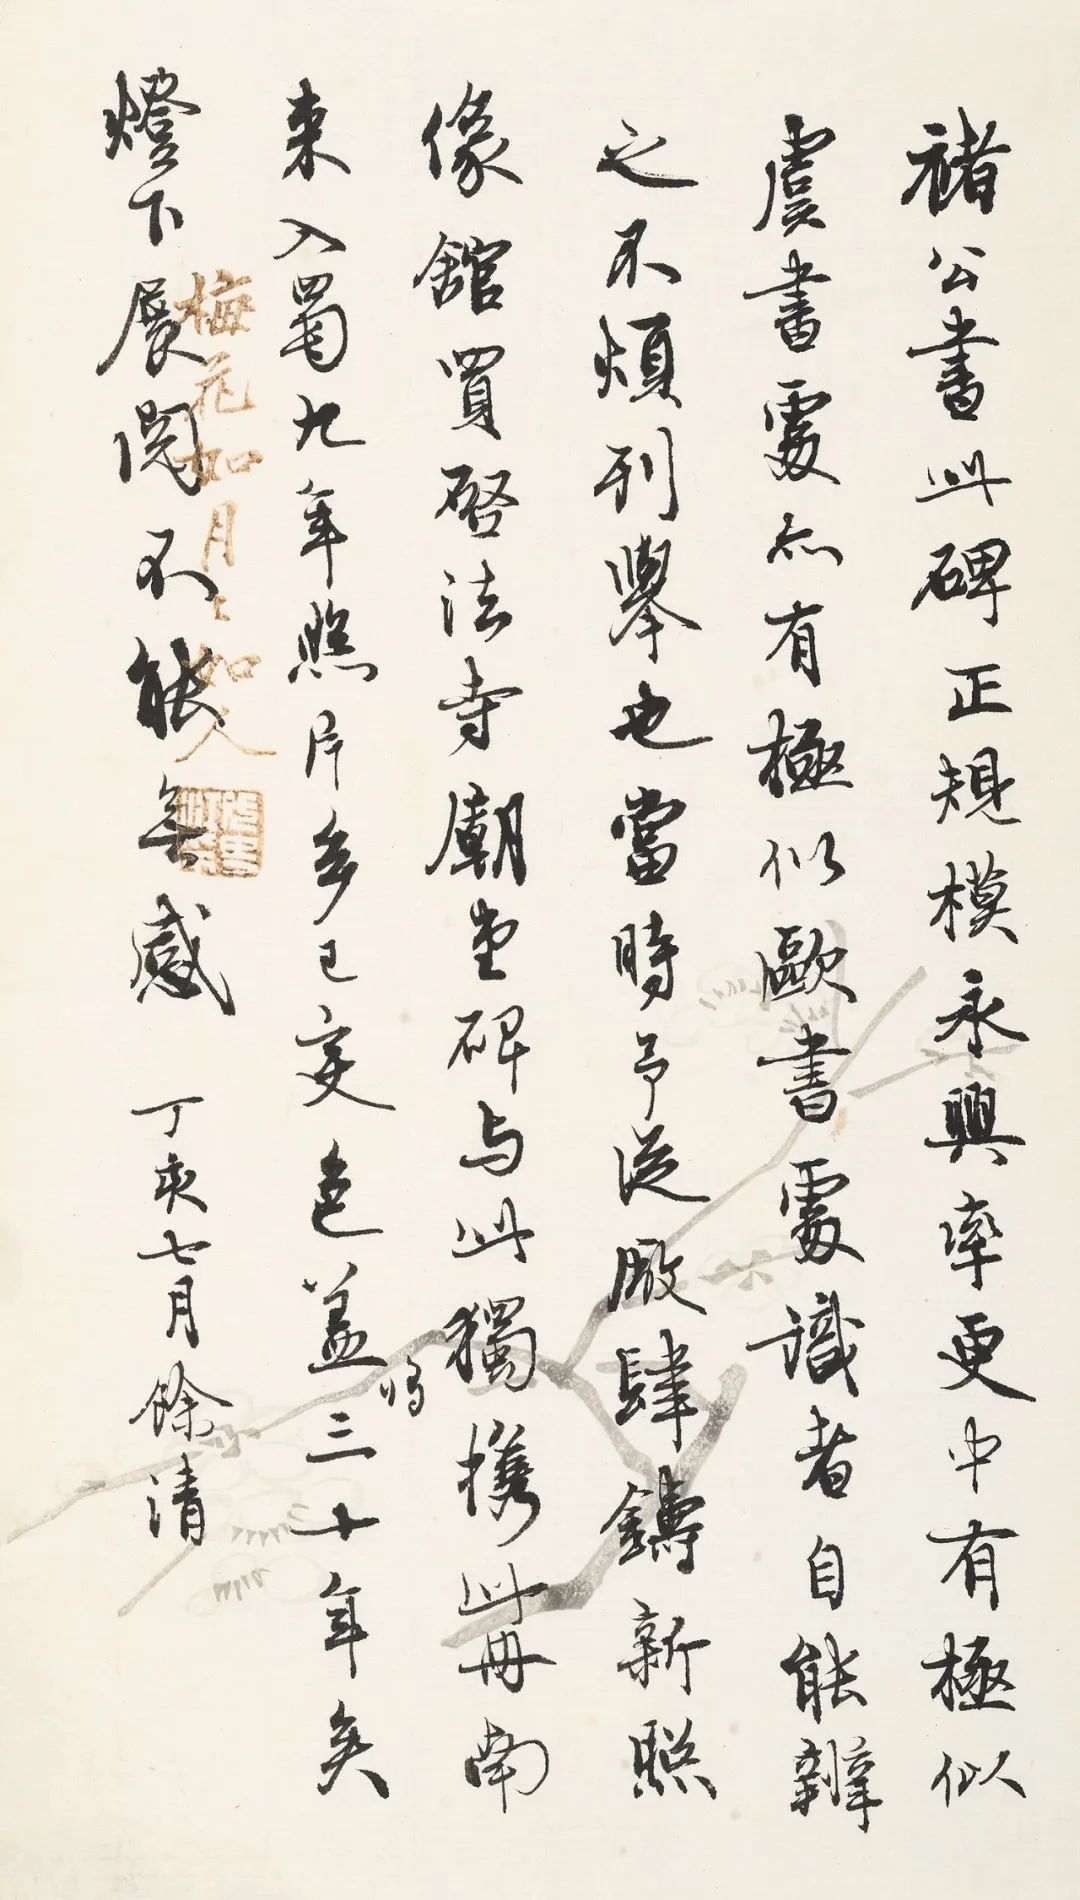 褚公書此碑正規模永興率更中有極似
虞書處亦有極似歐書處識者自能辨
之不煩刊舉也當時予從廠肆鑄新照
像館買啓法寺廟堂碑与此獨攜此冊南
來入蜀九年照片多已变色蓋将三十年矣
燈下展閱不能無感 丁亥七月餘清
梅花如月月如人